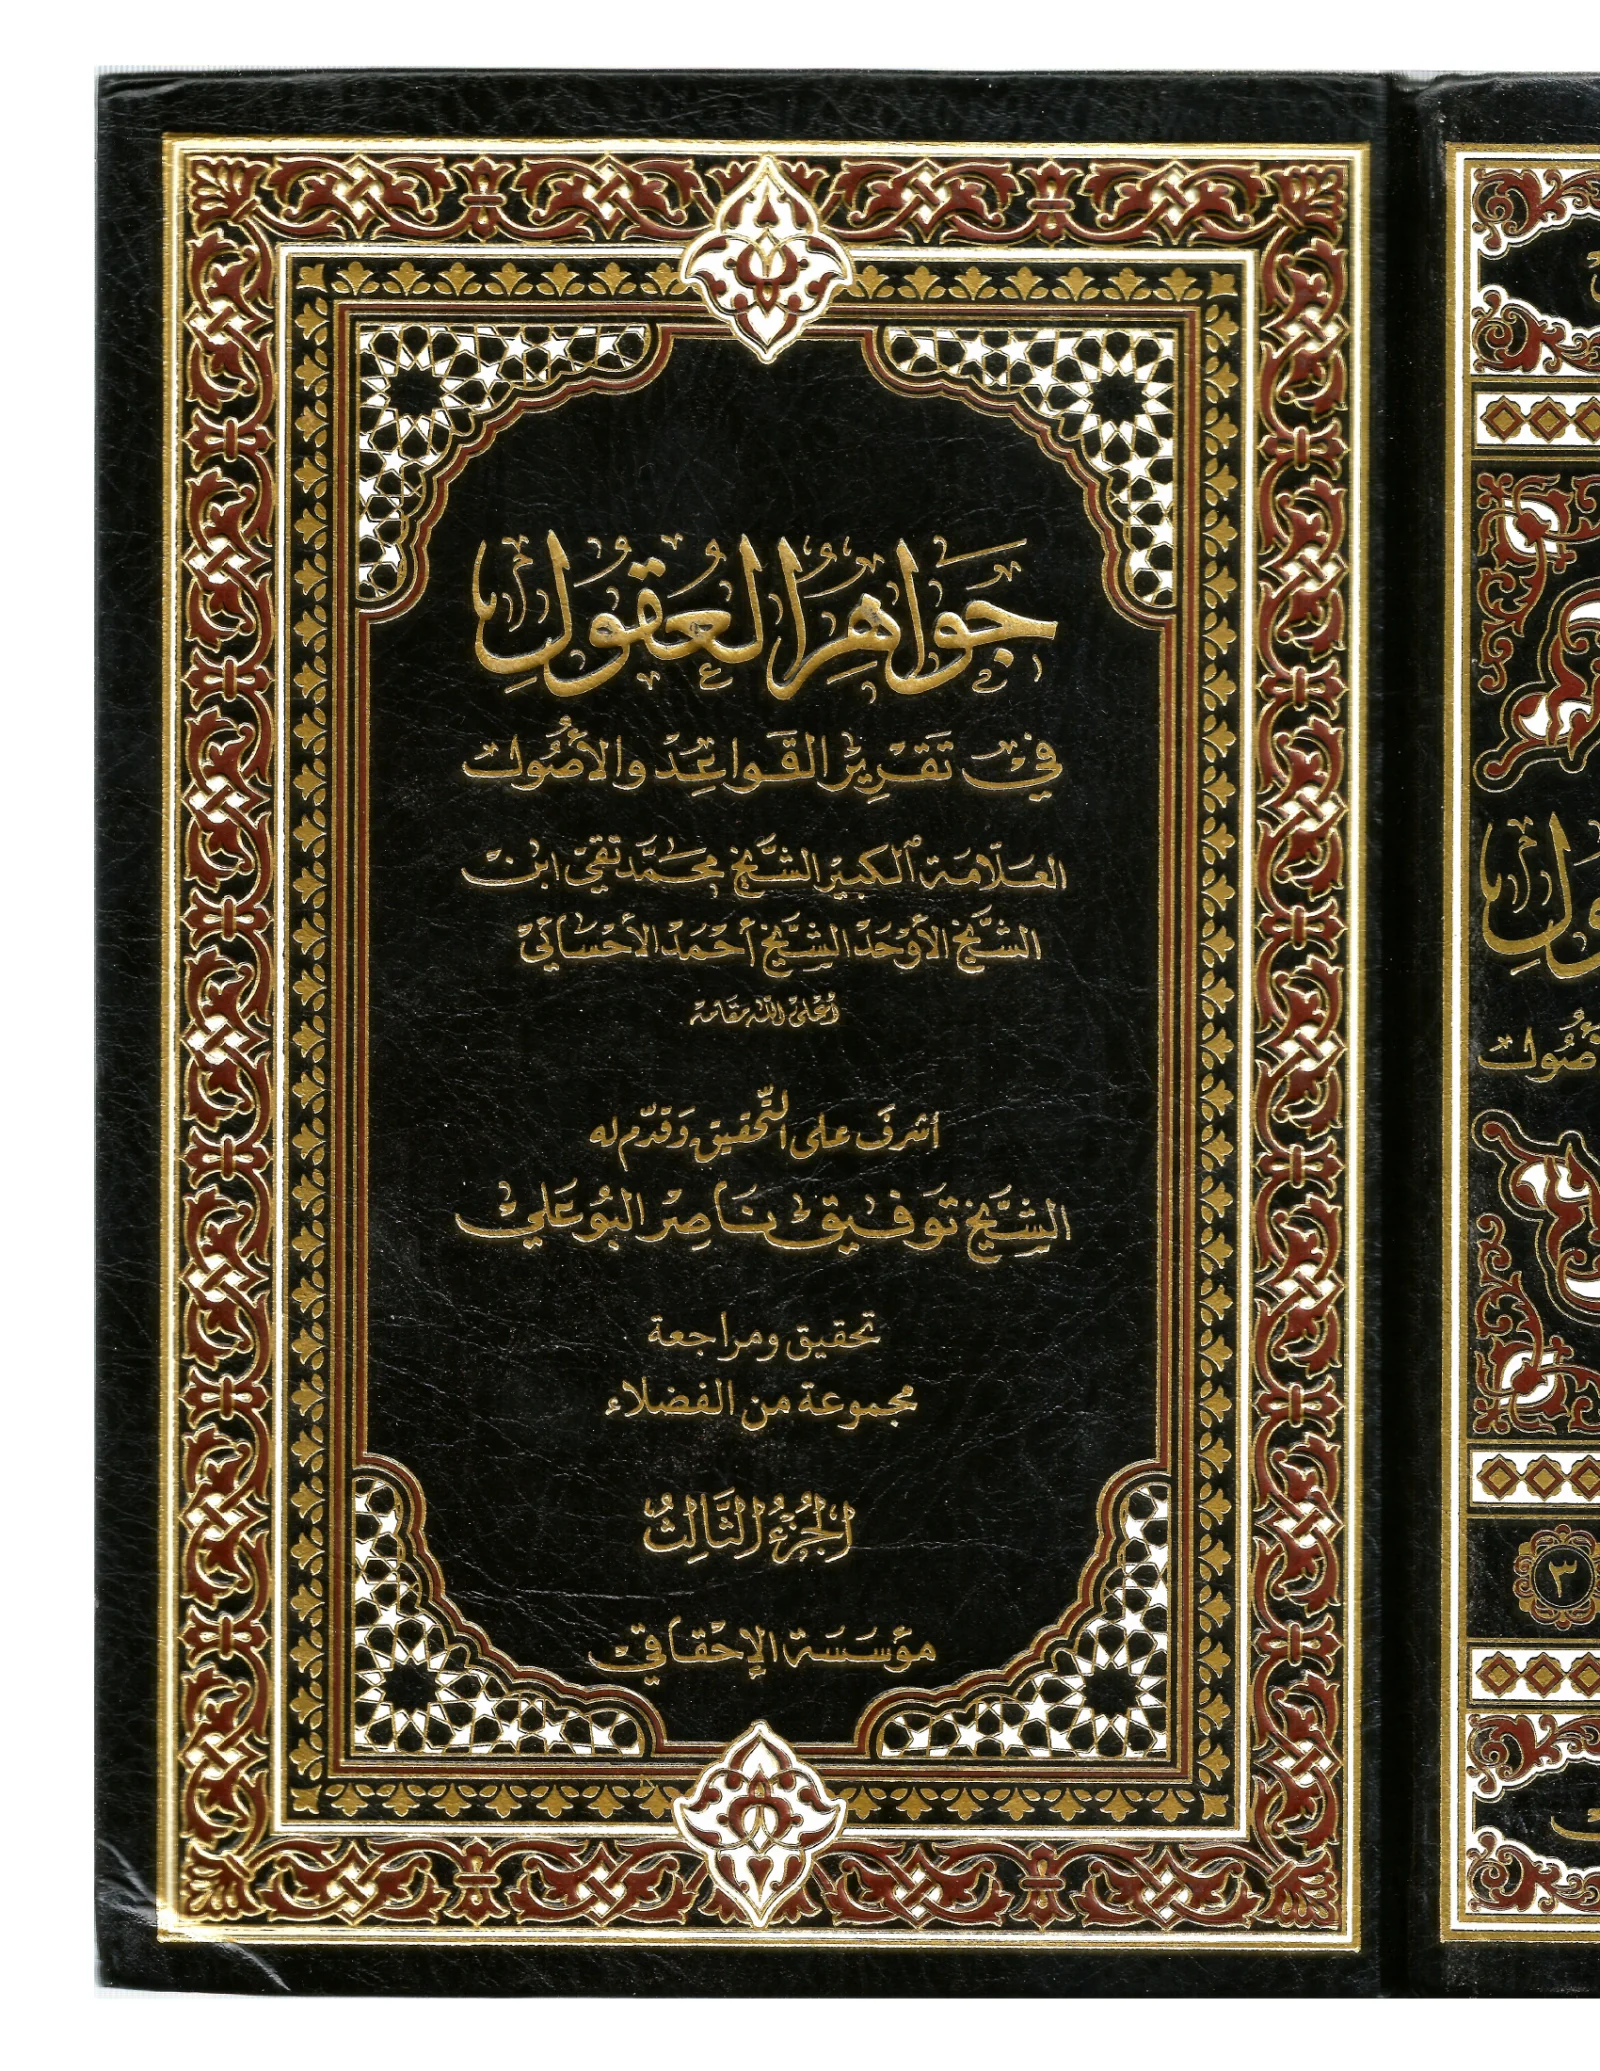 جَوَاهِرُ العُقُولِ
في تَقْرِيْرِ القَواعِدِ والأُصُول
العلّامة الكبير الشَّيخ محمَّد تقي ابن
الشَّيخ الأَوْحَد الشَّيخ أحْمَد الأحسائي
أعلى الله مقامه
أشرف على التّحقيق وقدّم له
الشَّيخ تَوفيق ناصِر البُوعَلي
تحقيق ومراجعة
مجموعة من الفضلاء
الجُزءُ الثَّالِثُ
مؤسَسَة الإحقاقي
٣